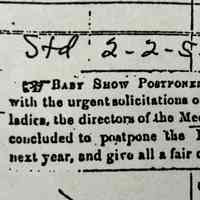 Std 2-2-5
☞ BABY SHOW POSTPONE
with the urgent solicitations o
ladies, the directors of the Me
concluded to postpone the
next year, and give all a fair